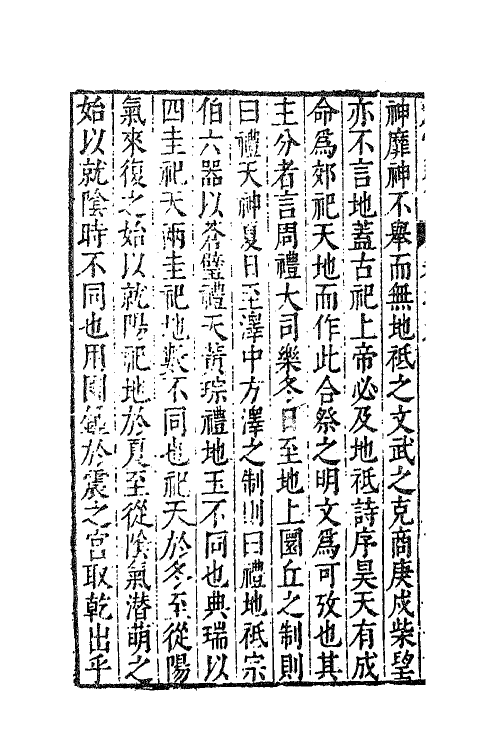 神靡神不舉而無地祇之文武之克商庚戍柴望
亦不言地蓋古祀上帝必及地祇詩序昊天有成
命爲郊祀天地而作此合祭之明文爲可攷也其
主分者言周禮大司樂冬日至地上圜丘之制則
曰禮天神夏日至澤中方澤之制則曰禮地祇宗
伯六器以蒼璧禮天黃琮禮地玉不同也典瑞以
四圭祀天兩圭祀地數不同也祀天於冬至從陽
氣來復之始以就陽祀地於夏至從陰氣潜萌之
始以就陰時不同也用圜鍾於震之宮取乾出乎